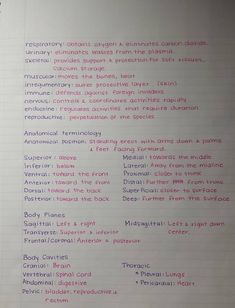 respiratory: obtains oxygen & eliminates carbon dioxide.
urinary: eliminates wastes from the plasma.
skeletal: provides support & protection for soft tissues,
calcium storage.
muscular: moves the bones, heart
integumentary: outer protective layer (skin)
immune: defends against foreign invaders
nervous: controls & coordinates activities rapidly
endocrine: regulates activities that require duration
reproductive: perpetuation of the species
Anatomical terminology
Anatomical position: standing erect with arms down & palms
& feet facing forward.
Superior: above Medial: towards the middle
Inferior: below Lateral: away from the midline
Ventral: toward the front Proximal: closer to trunk
Anterior: toward the front Distal: further from trunk
Dorsal: toward the back Superficial: closer to surface
Posterior: toward the back Deep: further from the surface
Body Planes
Sagittal: Left & right Midsagittal: Left & right down
Transverse: Superior & inferior center.
Frontal/Coronal: Anterior & posterior
Body Cavities
Cranial: Brain Thoracic
Vertebral: Spinal cord * Pleural: Lungs
Abdominal: digestive * Pericardial: Heart
Pelvic: bladder, reproductive &
rectum